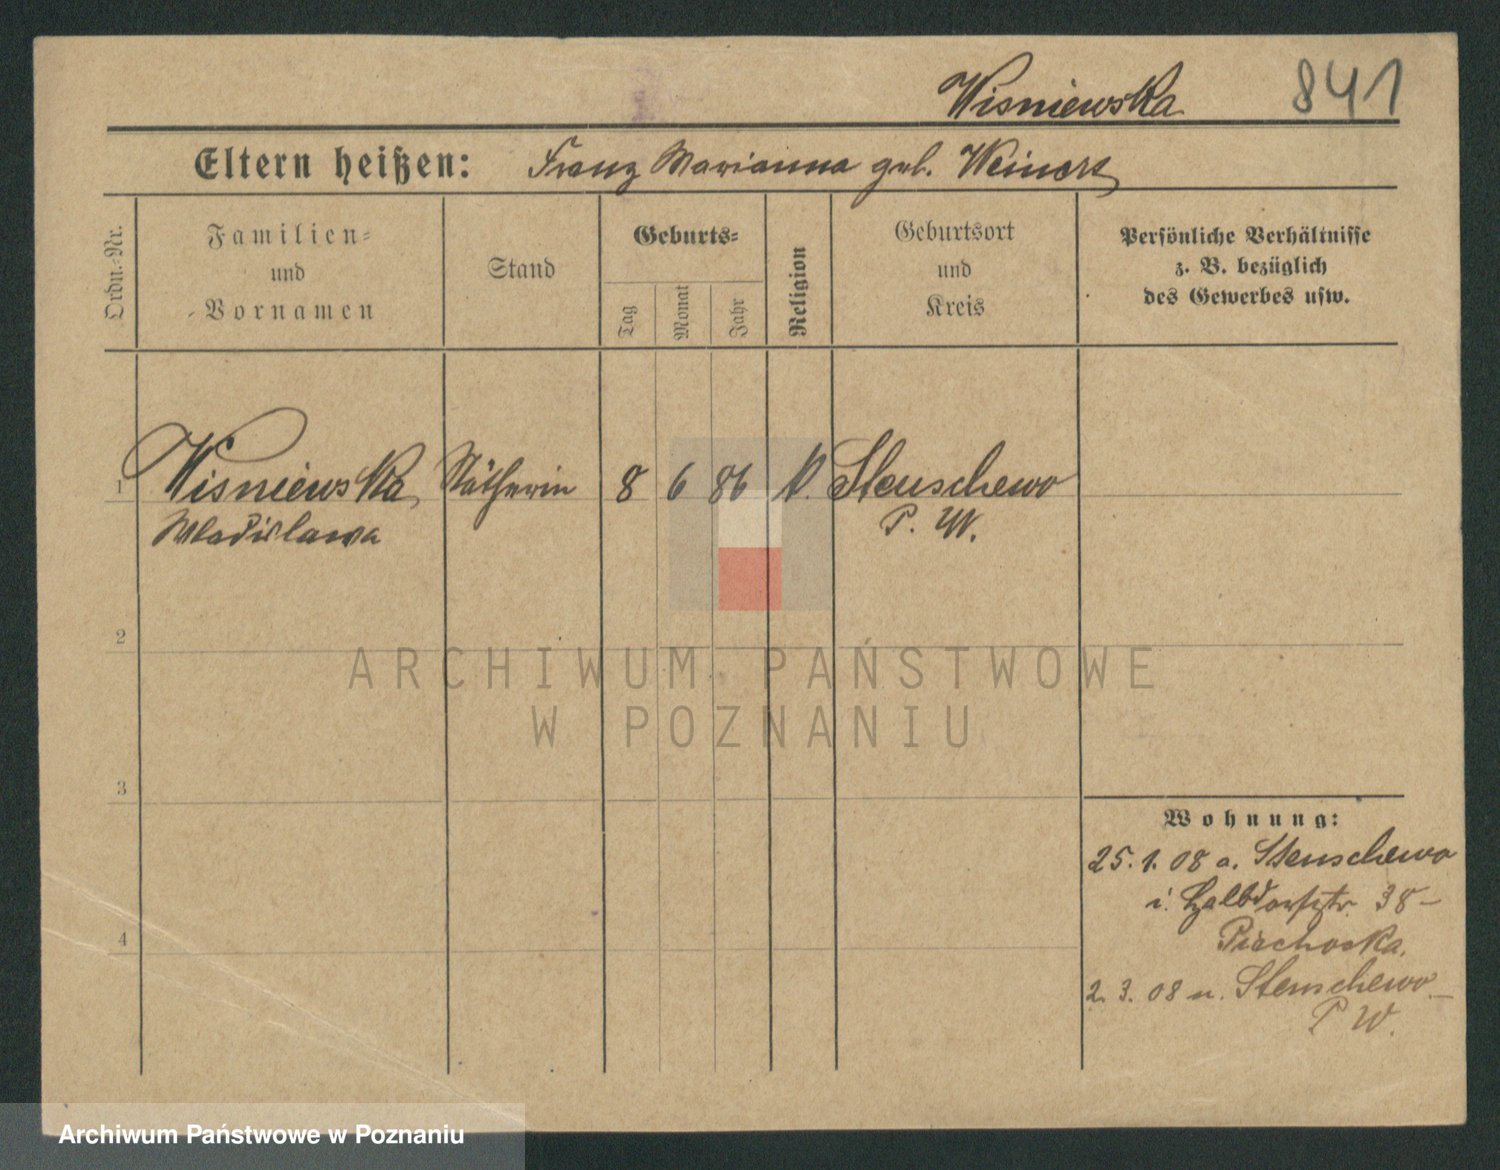 Wisniewska 841
Eltern heißen: Franz Marianna geb. Weinert
Ordn.-Nr.
Familien-
und
Vornamen
Stand
Geburts-
Tag
Monat
Jahr
Religion
Geburtsort
und
Kreis
Persönliche Verhältnisse
z. B. bezüglich
des Gewerbes usw.
1 Wisniewska Nätherin 8 6 86 k. Stenschewo
Wladislawa P. W.
2
3
4
Wohnung:
25. 1. 08 a. Stenschewo
i. Halbdorfstr. 38-
2. 3. 08 n. Stenschewo
P. W.
ARCHIWUM PAŃSTWOWE
W POZNANIU
Archiwum Państwowe w Poznaniu